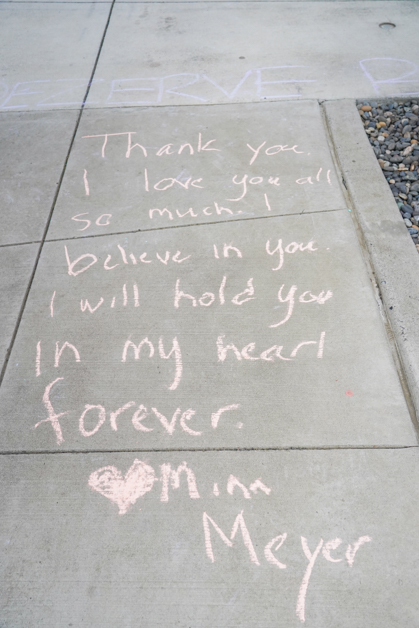 DESERVE
Thank you.
I love you all
so much. I
believe in you.
I will hold you
in my heart
forever.
Meyer